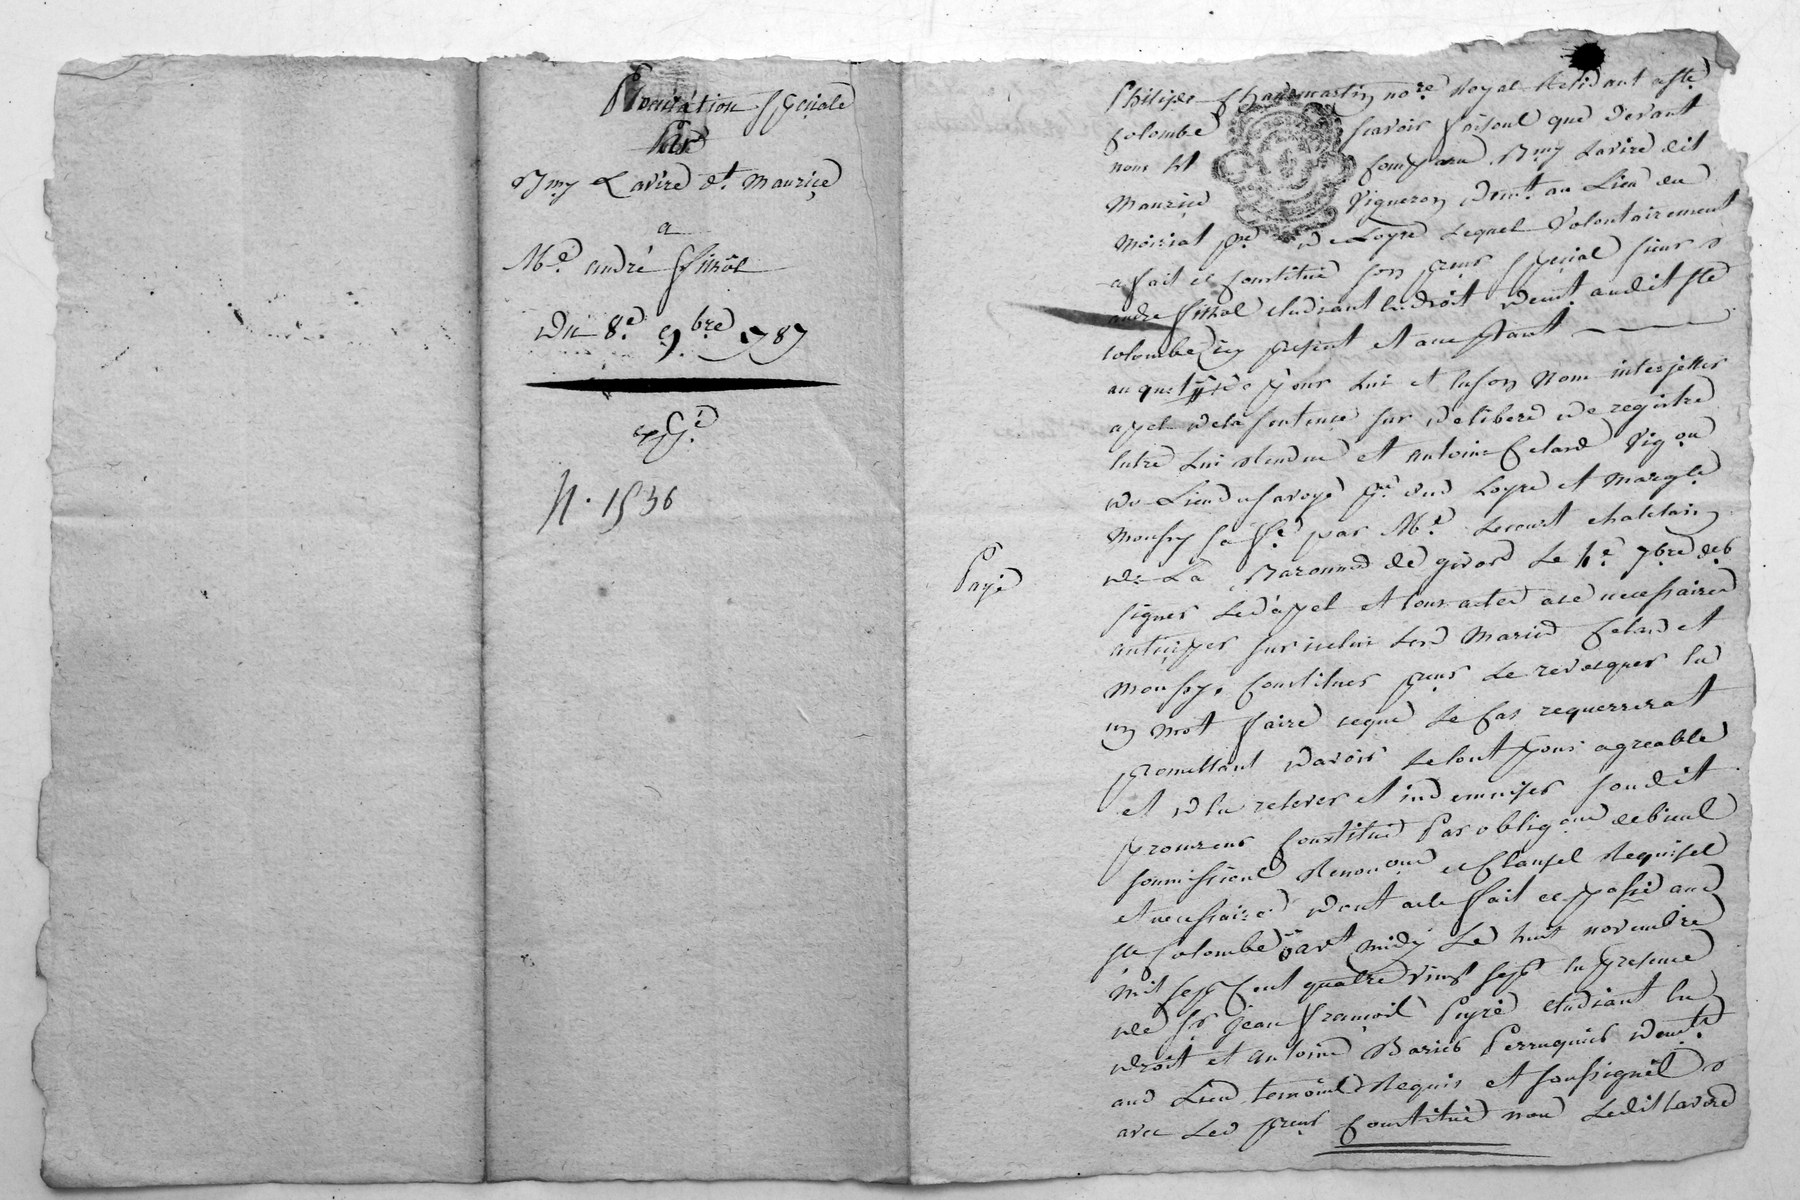 Procuration speciale
par
Bmy Lavire dt. Maurice
a
Me. andré Fithol
Du 8e. 9bre 1787
expé.
n. 1536
Payé
Philipe Chammartin nore Royal Residant a Ste
Colombe scavoir faisons que devant
nous est comparu Bmy Lavire dit
Maurice Vigneron demt. au Lieu du
pse de Loyre Lequel volontairement
a fait et constitué son preur special sieur
andre Fithol etudiant en droit demt. audit Ste
Colombe icy present et acceptant
auquel pour Lui et en son nom interjetter
apel de la sentence sur deliberé de registre
entre Lui rendue et antoine Celard Vigon
du Lieu pse dud Loyre et Margte
Moussy sa fe. par Me. Lecourt chatelain
de La Baronnie de givors Le 4e 7bre der
signer Led apel et tous actes a ce necessaires
anticiper sur icelui Lesd Mariés Celard et
Moussy, constituer preurs Le revoquer en
un mot faire ceque Le cas requerrerat
promettant d'avoir Letout pour agreable
et de en relever et indemniser sondit
procureur constitué Par obligon de biens
soumissions Renonon et Clauses Requises
et necessaires dont acte fait et passé aud
Ste Colombe avt midy Le huit novembre
mil sept cent quatre vingt sept en presence
de sr jean francois Peyre etudiant en
droit et antoine Barier Perruquier demts.
aud Lieu temoins Requis et soussignés
avec Led preur constitué non Ledit Lavire